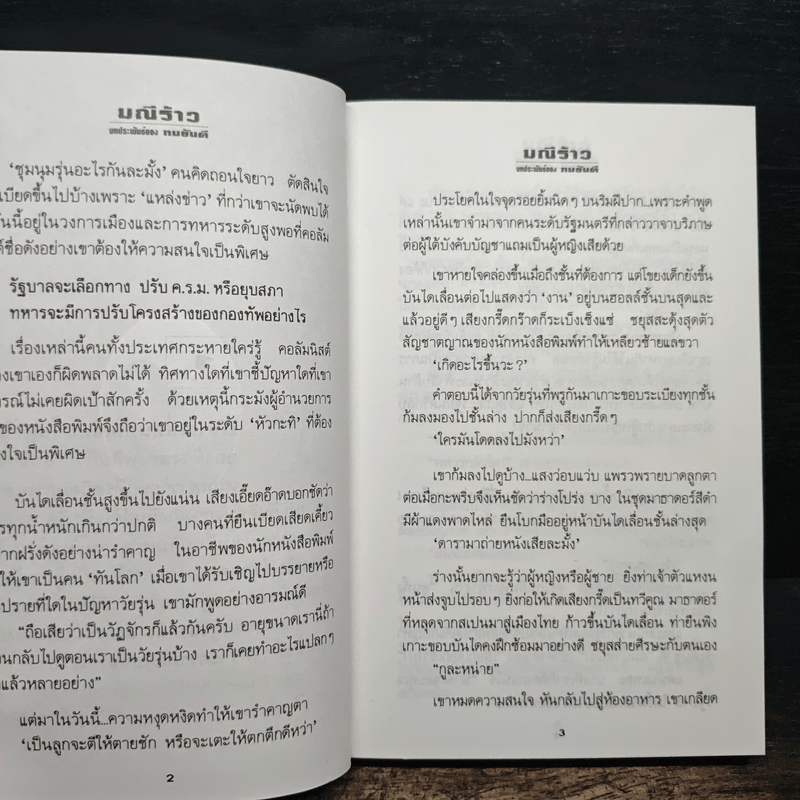 มณีร้าว
บทประพันธ์ของ ทมยันตี
‘ชุมนุมรุ่นอะไรกันละมั้ง’ คนคิดถอนใจยาว ตัดสินใจ
เบียดขึ้นไปบ้างเพราะ ‘แหล่งข่าว’ ที่กว่าเขาจะนัดพบได้
วันนี้อยู่ในวงการเมืองและการทหารระดับสูงพอที่คอลัม
ชื่อดังอย่างเขาต้องให้ความสนใจเป็นพิเศษ
รัฐบาลจะเลือกทาง ปรับ ค.ร.ม. หรือยุบสภา
ทหารจะมีการปรับโครงสร้างของกองทัพอย่างไร
เรื่องเหล่านี้คนทั้งประเทศกระหายใคร่รู้ คอลัมนิสต์
างเขาเองก็ผิดพลาดไม่ได้ ทิศทางใดที่เขาชี้ปัญหาใดที่เขา
ารณ์ไม่เคยผิดเป้าสักครั้ง ด้วยเหตุนี้กระมังผู้อำนวยการ
ของหนังสือพิมพ์จึงถือว่าเขาอยู่ในระดับ ‘หัวกะทิ’ ที่ต้อง
งใจเป็นพิเศษ
บันไดเลื่อนชั้นสูงขึ้นไปยังแน่น เสียงเอี๊ยดอ๊าดบอกชัดว่า
รทุกน้ำหนักเกินกว่าปกติ บางคนที่ยืนเบียดเสียดเคี้ยว
ากฝรั่งดังอย่างน่ารำคาญ ในอาชีพของนักหนังสือพิมพ์
ให้เขาเป็นคน ‘ทันโลก’ เมื่อเขาได้รับเชิญไปบรรยายหรือ
ปรายที่ใดในปัญหาวัยรุ่น เขามักพูดอย่างอารมณ์ดี
“ถือเสียว่าเป็นวัฏจักรก็แล้วกันครับ อายุขนาดเรานี่ถ้า
นกลับไปดูตอนเราเป็นวัยรุ่นบ้าง เราก็เคยทำอะไรแปลกๆ
แล้วหลายอย่าง”
แต่มาในวันนี้...ความหงุดหงิดทำให้เขารำคาญตา
‘เป็นลูกจะตีให้ตายชัก หรือจะเตะให้ตกตึกดีหว่า’
2
มณีร้าว
บทประพันธ์ของ ทมยันตี
ประโยคในใจจุดรอยยิ้มนิดๆ บนริมฝีปาก...เพราะคำพูด
เหล่านั้นเขาจำมาจากคนระดับรัฐมนตรีที่กล่าววาจาบริภาษ
ต่อผู้ใต้บังคับบัญชาแถมเป็นผู้หญิงเสียด้วย
เขาหายใจคล่องขึ้นเมื่อถึงชั้นที่ต้องการ แต่โขยงเด็กยังขึ้น
บันไดเลื่อนต่อไปแสดงว่า ‘งาน’ อยู่บนฮอลล์ชั้นบนสุดและ
แล้วอยู่ดีๆ เสียงกรี๊ดกร๊าดก็ระเบ็งเซ็งแซ่ ชยุสสะดุ้งสุดตัว
สัญชาตญาณของนักหนังสือพิมพ์ทำให้เหลียวซ้ายแลขวา
‘เกิดอะไรขึ้นวะ ?’
คำตอบนี้ได้จากวัยรุ่นที่พรูกันมาเกาะขอบระเบียงทุกชั้น
ก้มลงมองไปชั้นล่าง ปากก็ส่งเสียงกรี๊ดๆ
‘ใครมันโดดลงไปมังหว่า’
เขาก้มลงไปดูบ้าง...แสงว่อบแว่บ แพรวพรายบาดลูกตา
ต่อเมื่อกะพริบจึงเห็นชัดว่าร่างโปร่ง บาง ในชุดมาธาดอร์สีดำ
มีผ้าแดงพาดไหล่ ยืนโบกมืออยู่หน้าบันไดเลื่อนชั้นล่างสุด
‘ดารามาถ่ายหนังเสียละมั้ง’
ร่างนั้นยากจะรู้ว่าผู้หญิงหรือผู้ชาย ยิ่งท่าเจ้าตัวแหงน
หน้าส่งจูบไปรอบๆ ยิ่งก่อให้เกิดเสียงกรี๊ดเป็นทวีคูณ มาธาดอร์
ที่หลุดจากสเปนมาสู่เมืองไทย ก้าวขึ้นบันไดเลื่อน ท่ายืนพิง
เกาะขอบบันไดคงฝึกซ้อมมาอย่างดี ชยุสส่ายศีรษะกับตนเอง
“กูละหน่าย”
เขาหมดความสนใจ หันกลับไปสู่ห้องอาหาร เขาเกลียด
3